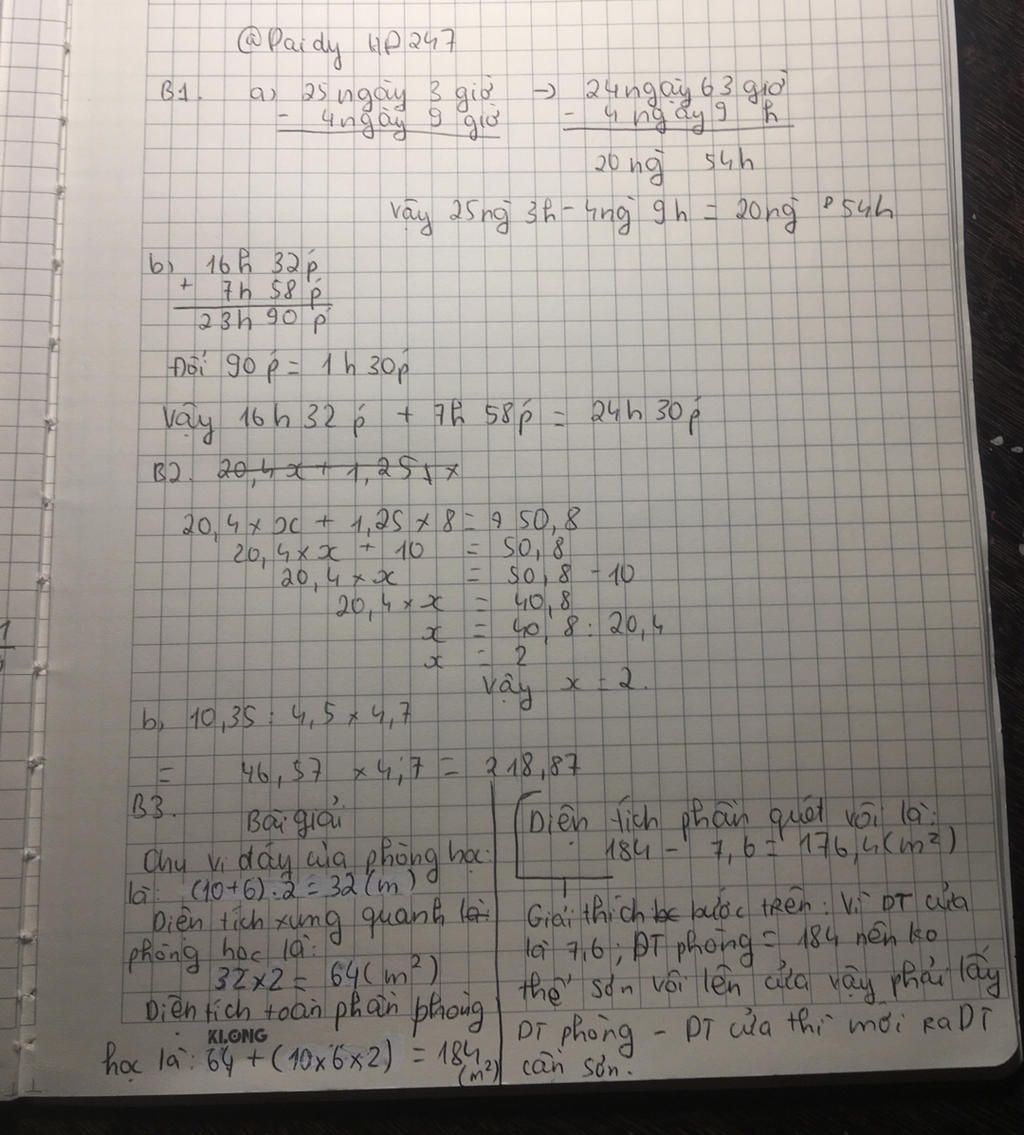 @Paidy HP247
B1. a) 25 ngày 3 giờ → 24 ngày 63 giờ
- 4 ngày 9 giờ - 4 ngày 9 h
20 ng 54h
Vậy 25ng 3h - 4ng 9h = 20ng 54h
b) 16h 32p
+ 7h 58p
23h 90p
Đổi 90p = 1h 30p
Vậy 16h 32p + 7h 58p = 24h 30p
B2. 20,4 x + 1,25 x
20,4 × x + 1,25 × 8 = 50,8
20,4 × x + 10 = 50,8
20,4 × x = 50,8 - 10
20,4 × x = 40,8
x = 40,8 : 20,4
x = 2
Vậy x = 2.
b, 10,35 : 4,5 × 4,7
= 46,57 × 4,7 = 218,87
B3.
Bài giải
Chu vi đáy của phòng học
là: (10+6).2 = 32 (m)
Diện tích xung quanh là
phòng học là:
32×2 = 64 (m²)
Diện tích toàn phần phòng
KLONG
học là: 64 + (10×6×2) = 184
(m²)
Diện tích phần quét vôi là:
184 - 7,6 = 176,4 (m²)
Giải thích bước trên: Vì DT cửa
là 7,6; DT phòng = 184 nên ko
thể sơn vôi lên cửa vậy phải lấy
DT phòng - DT cửa thì mới ra DT
cần sơn.